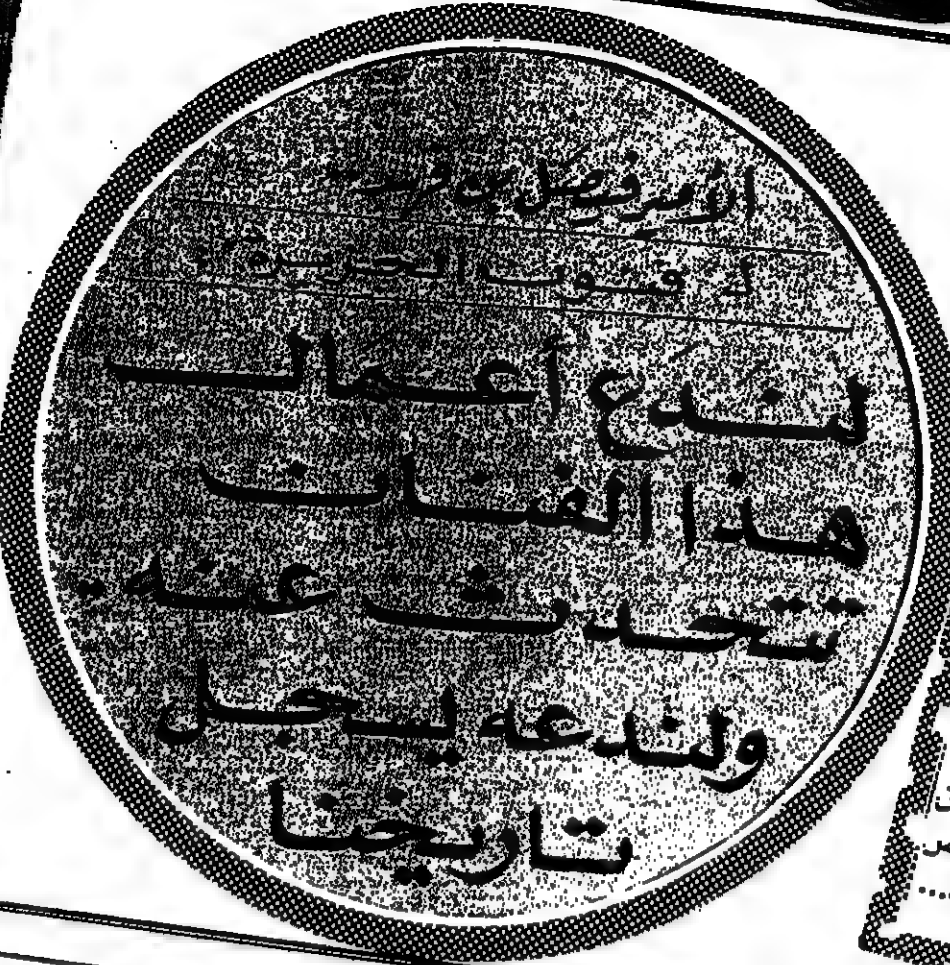 الأمير فيصل بن فهد ..
لـ فنون الجزيرة :
لندع أعمال
هذا الفنان
تتحدث عنه .
ولندعه يسجل
تاريخنا